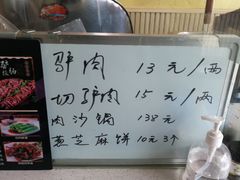 驴肉 13元/两
切驴肉 15元/两
肉沙锅 138元
葱芝麻饼 10元3个